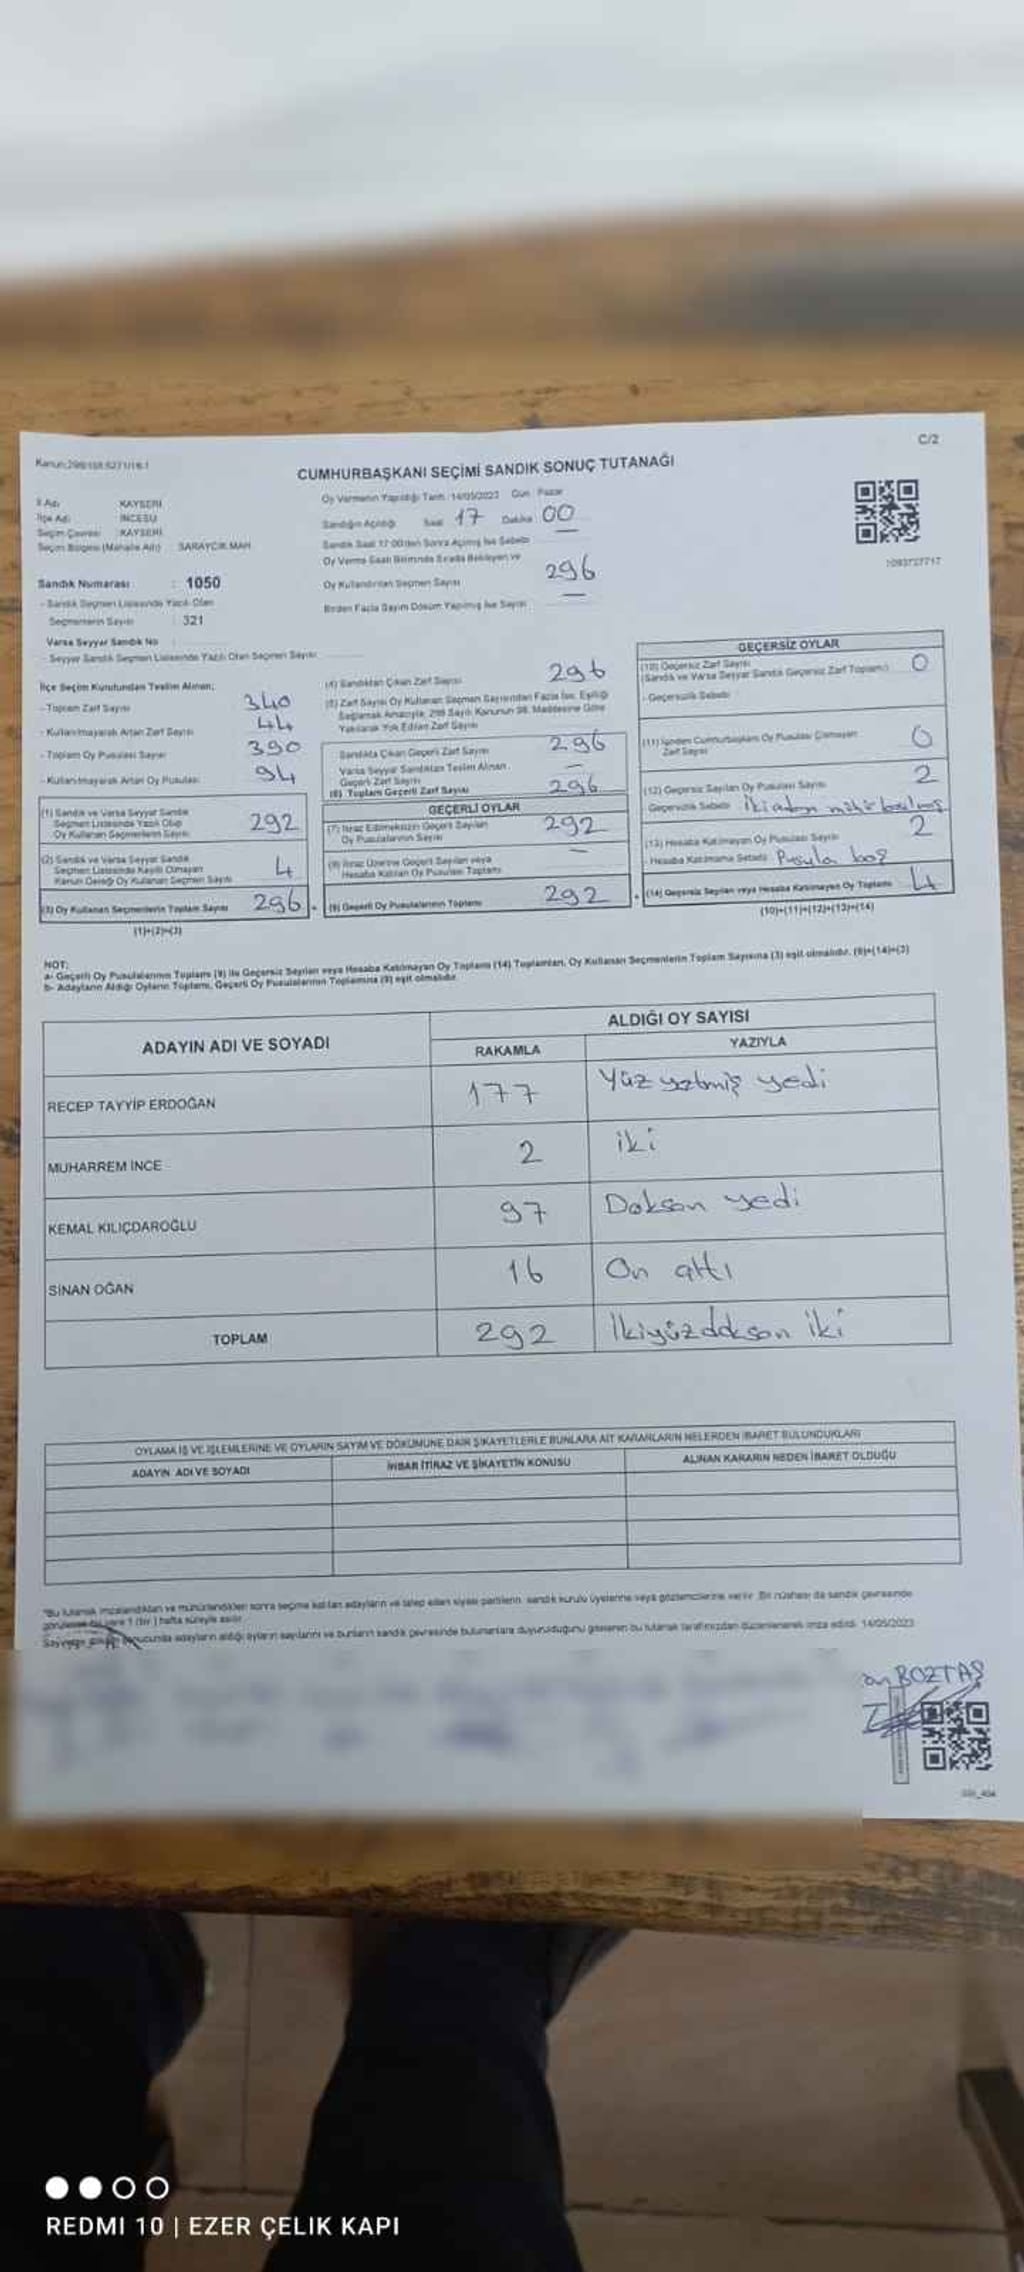 C/2
CUMHURBAŞKANI SEÇİMİ SANDIK SONUÇ TUTANAĞI
İl Adı : KAYSERİ
İlçe Adı : İNCESU
Seçim Çevresi : KAYSERİ
Seçim Bölgesi (Mahalle Adı) : SARAYCIK MAH.
Oy Vermenin Yapıldığı Tarih : 14/05/2023 Gün : Pazar
Sandığın Açıldığı Saat 17 Dakika 00
Sandık Saat 17:00'den Sonra Açılmış İse Sebebi
Oy Verme Saati Bitiminde Sırada Bekleyen ve
Oy Kullandırılan Seçmen Sayısı 296
Birden Fazla Sayım Döküm Yapılmış İse Sayısı —
1093727717
Sandık Numarası : 1050
- Sandık Seçmen Listesinde Yazılı Olan
Seçmenlerin Sayısı : 321
Varsa Seyyar Sandık No :
- Seyyar Sandık Seçmen Listesinde Yazılı Olan Seçmen Sayısı :
İlçe Seçim Kurulundan Teslim Alınan;
- Toplam Zarf Sayısı 340
- Kullanılmayarak Artan Zarf Sayısı 44
- Toplam Oy Pusulası Sayısı 390
- Kullanılmayarak Artan Oy Pusulası 94
(1) Sandık ve Varsa Seyyar Sandık
Seçmen Listesinde Yazılı Olup
Oy Kullanan Seçmenlerin Sayısı 292
(2) Sandık ve Varsa Seyyar Sandık
Seçmen Listesinde Kayıtlı Olmayan
Kanun Gereği Oy Kullanan Seçmen Sayısı 4
(3) Oy Kullanan Seçmenlerin Toplam Sayısı 296
(1)+(2)=(3)
(4) Sandıktan Çıkan Zarf Sayısı 296
(5) Zarf Sayısı Oy Kullanan Seçmen Sayısından Fazla İse, Eşitliği
Sağlamak Amacıyla, 298 Sayılı Kanunun 98. Maddesine Göre
Yakılarak Yok Edilen Zarf Sayısı
Sandıkta Çıkan Geçerli Zarf Sayısı 296
Varsa Seyyar Sandıktan Teslim Alınan
Geçerli Zarf Sayısı —
(6) Toplam Geçerli Zarf Sayısı 296
GEÇERLİ OYLAR
(7) İtiraz Edilmeksizin Geçerli Sayılan
Oy Pusulalarının Sayısı 292
(8) İtiraz Üzerine Geçerli Sayılan veya
Hesaba Katılan Oy Pusulası Toplamı —
(9) Geçerli Oy Pusulalarının Toplamı 292
GEÇERSİZ OYLAR
(10) Geçersiz Zarf Sayısı
(Sandık ve Varsa Seyyar Sandık Geçersiz Zarf Toplamı) 0
- Geçersizlik Sebebi :
(11) İçinden Cumhurbaşkanı Oy Pusulası Çıkmayan
Zarf Sayısı 0
(12) Geçersiz Sayılan Oy Pusulası Sayısı 2
Geçersizlik Sebebi :
(13) Hesaba Katılmayan Oy Pusulası Sayısı 2
- Hesaba Katılmama Sebebi : Pusula boş
(14) Geçersiz Sayılan veya Hesaba Katılmayan Oy Toplamı 4
(10)+(11)+(12)+(13)=(14)
NOT:
a- Geçerli Oy Pusulalarının Toplamı (9) ile Geçersiz Sayılan veya Hesaba Katılmayan Oy Toplamı (14) Toplamları, Oy Kullanan Seçmenlerin Toplam Sayısına (3) eşit olmalıdır. (9)+(14)=(3)
b- Adayların Aldığı Oyların Toplamı, Geçerli Oy Pusulalarının Toplamına (9) eşit olmalıdır.
ADAYIN ADI VE SOYADI
ALDIĞI OY SAYISI
RAKAMLA
YAZIYLA
RECEP TAYYİP ERDOĞAN 177 Yüz yetmiş yedi
MUHARREM İNCE 2 iki
KEMAL KILIÇDAROĞLU 97 Doksan yedi
SİNAN OĞAN 16 On altı
TOPLAM 292 İkiyüzdoksan iki
OYLAMA İŞ VE İŞLEMLERİNE VE OYLARIN SAYIM VE DÖKÜMÜNE DAİR ŞİKAYETLERLE BUNLARA AİT KARARLARIN NELERDEN İBARET BULUNDUKLARI
ADAYIN ADI VE SOYADI
İHBAR İTİRAZ VE ŞİKAYETİN KONUSU
ALINAN KARARIN NEDEN İBARET OLDUĞU
*Bu tutanak imzalandıktan ve mühürlendikten sonra seçime katılan adayların ve talep eden siyasi partilerin, sandık kurulu üyelerine veya gözlemcilerine verilir. Bir nüshası da sandık çevresinde
1 (bir) hafta süreyle asılır.
sonucunda adayların aldığı oyların sayılarını ve bunların sandık çevresinde bulunanlara duyurulduğunu gösteren bu tutanak tarafımızdan düzenlenerek imza edildi. 14/05/2023
BOZTAŞ
REDMI 10 | EZER ÇELIK KAPI